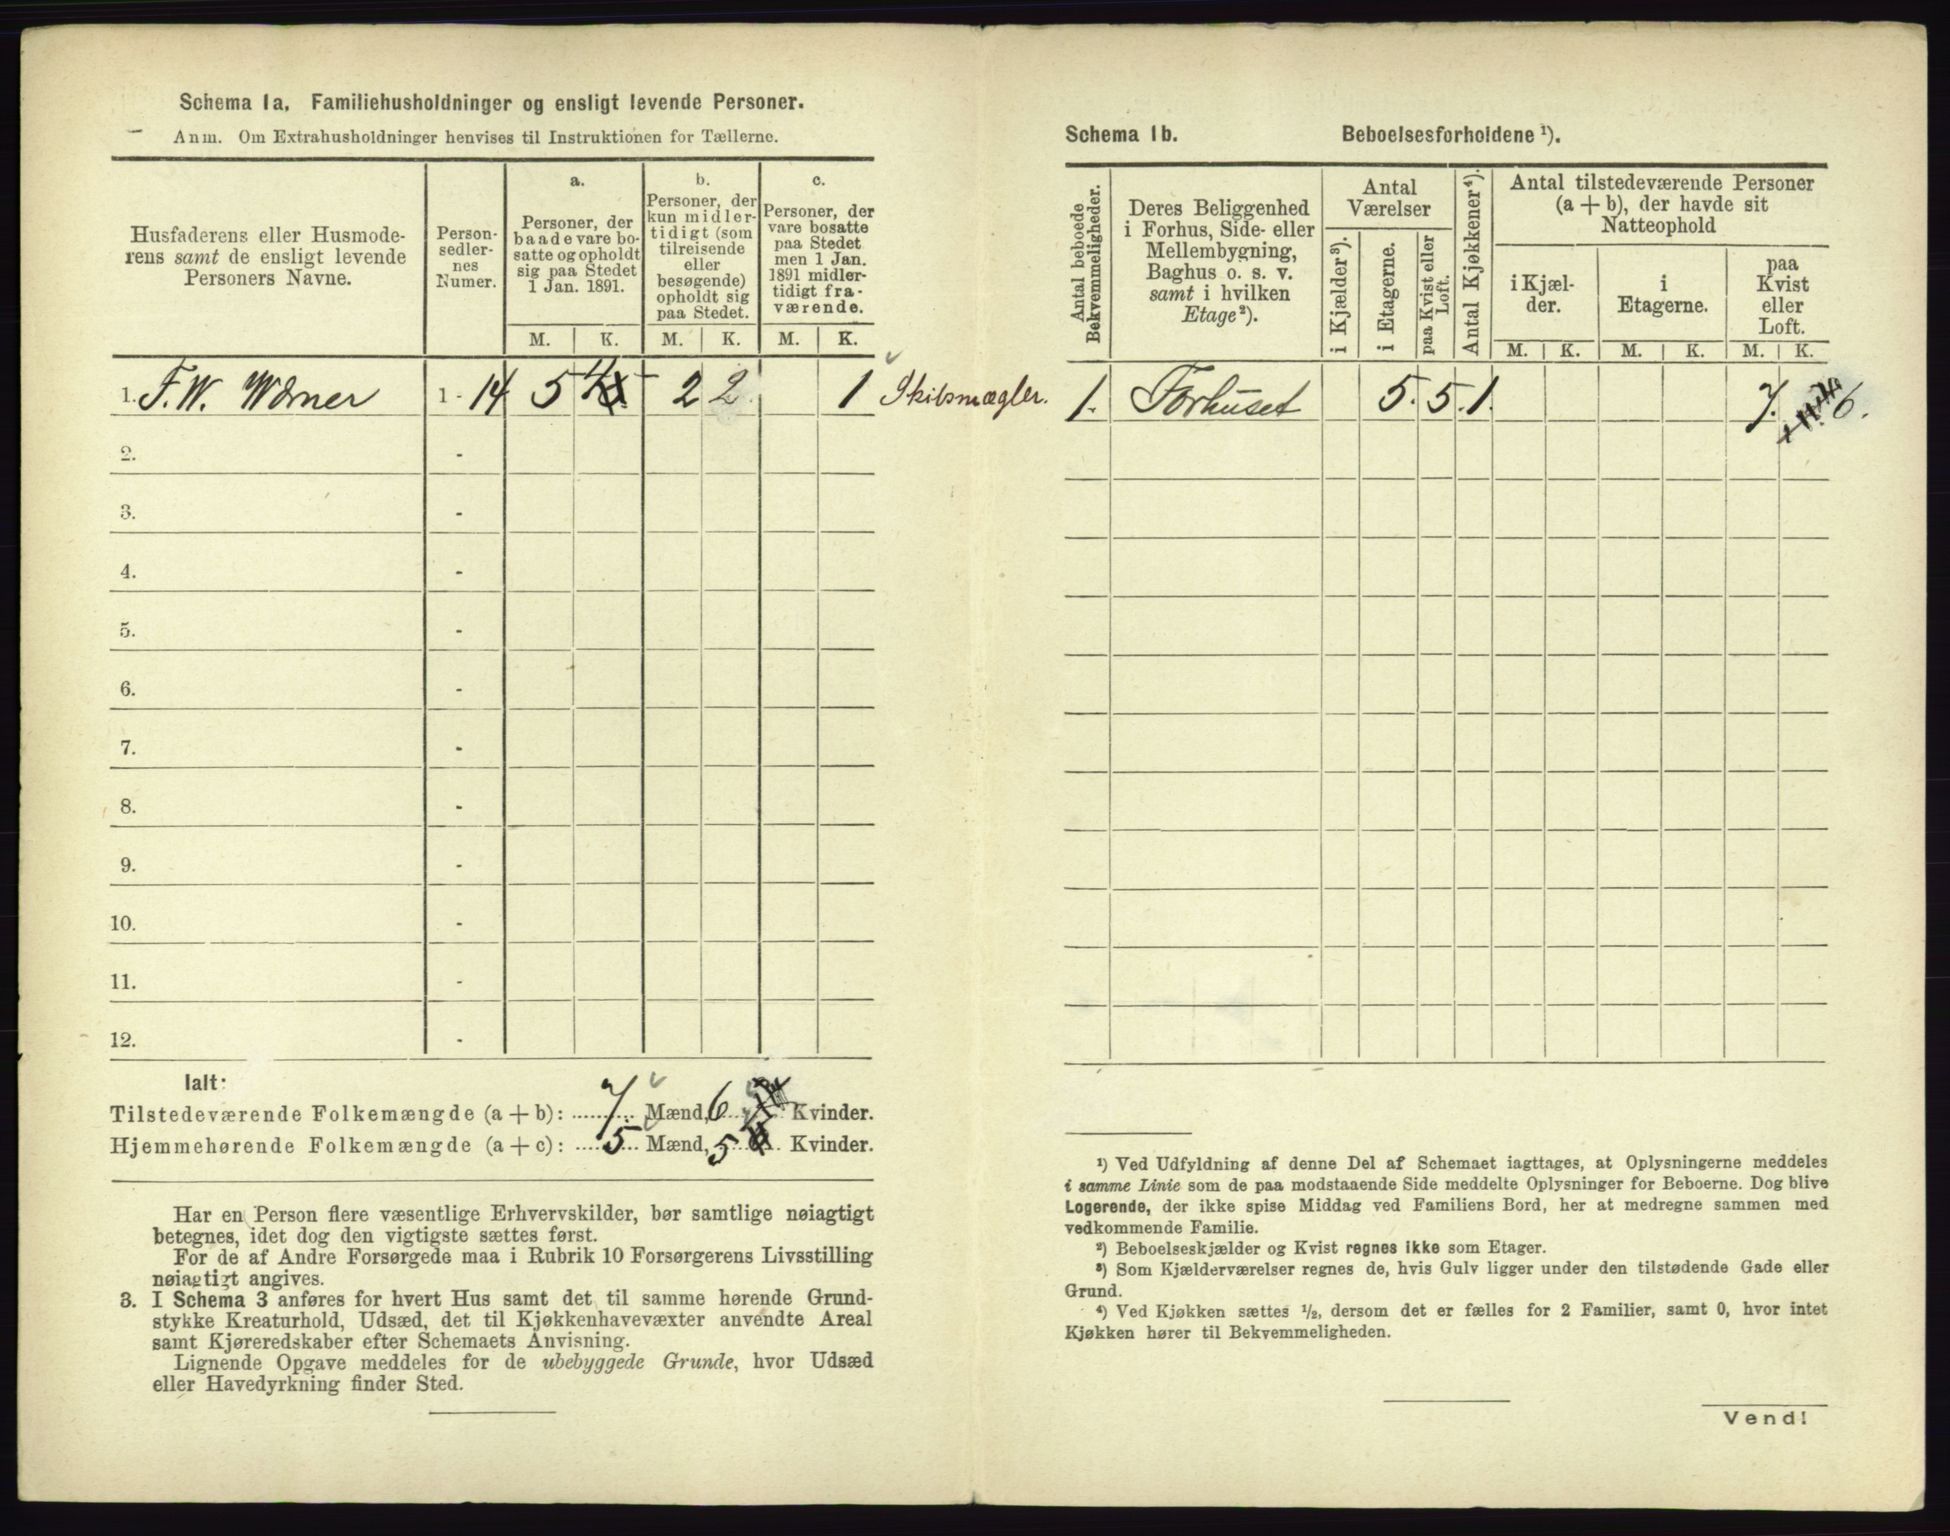 Schema 1a. Familiehusholdninger og ensligt levende Personer.
Anm. Om Extrahusholdninger henvises til Instruktionen for Tællerne.
Husfaderens eller Husmode-
rens samt de ensligt levende
Personers Navne.
Person-
sedler-
nes
Numer.
a.
Personer, der
baade vare bo-
satte og opholdt
sig paa Stedet
1 Jan. 1891.
b.
Personer, der
kun midler-
tidigt (som
tilreisende
eller
besøgende)
opholdt sig
paa Stedet.
c.
Personer, der
vare bosatte
paa Stedet
men 1 Jan.
1891 midler-
tidigt fra-
værende.
M. K. M. K. M. K.
1. F. W. Wærner 1 - 14 5 4 2 2 1 Skibsmægler.
2. -
3. -
4. -
5. -
6. -
7. -
8. -
9. -
10. -
11. -
12. -
Ialt:
Tilstedeværende Folkemængde (a + b): 7 Mænd, 6 Kvinder.
Hjemmehørende Folkemængde (a + c): 5 Mænd, 5 Kvinder.
Har en Person flere væsentlige Erhvervskilder, bør samtlige nøiagtigt
betegnes, idet dog den vigtigste sættes først.
For de af Andre Forsørgede maa i Rubrik 10 Forsørgerens Livsstilling
nøiagtigt angives.
3. I Schema 3 anføres for hvert Hus samt det til samme hørende Grund-
stykke Kreaturhold, Udsæd, det til Kjøkkenhavevæxter anvendte Areal
samt Kjøreredskaber efter Schemaets Anvisning.
Lignende Opgave meddeles for de ubebyggede Grunde, hvor Udsæd
eller Havedyrkning finder Sted.
Schema 1b. Beboelsesforholdene ¹).
Antal beboede
Bekvemmeligheder.
Deres Beliggenhed
i Forhus, Side- eller
Mellembygning,
Baghus o. s. v.
samt i hvilken
Etage²).
Antal
Værelser
i Kjælder³).
i Etagerne.
paa Kvist eller
Loft.
Antal Kjøkkener⁴).
Antal tilstedeværende Personer
(a + b), der havde sit
Natteophold
i Kjæl-
der.
i
Etagerne.
paa
Kvist
eller
Loft.
M. K. M. K. M. K.
1. Forhuset 5. 5. 1. 7. 6.
¹) Ved Udfyldning af denne Del af Schemaet iagttages, at Oplysningerne meddeles
i samme Linie som de paa modstaaende Side meddelte Oplysninger for Beboerne. Dog blive
Logerende, der ikke spise Middag ved Familiens Bord, her at medregne sammen med
vedkommende Familie.
²) Beboelseskjælder og Kvist regnes ikke som Etager.
³) Som Kjælderværelser regnes de, hvis Gulv ligger under den tilstødende Gade eller
Grund.
⁴) Ved Kjøkken sættes ½, dersom det er fælles for 2 Familier, samt 0, hvor intet
Kjøkken hører til Bekvemmeligheden.
Vend!